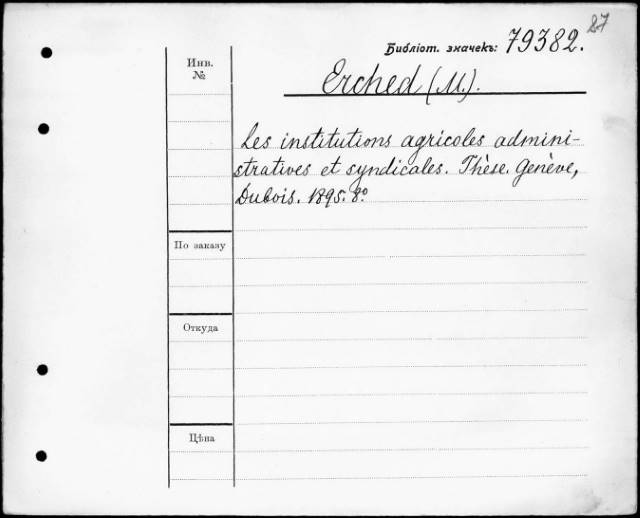 87
Библіот. значекъ: 79382.
Инв. №
Erched (M.).
Les institutions agricoles admini-
stratives et syndicales. Thèse. Genève,
Dubois. 1895. 8º.
По заказу
Откуда
Цѣна